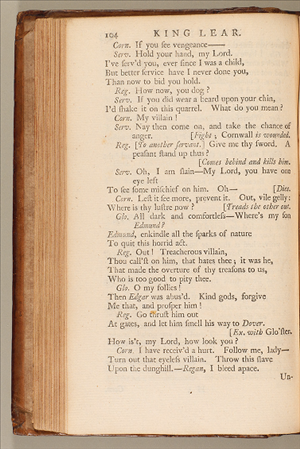 104 KING LEAR.
Corn. If you ſee vengeance——
Serv. Hold your hand, my Lord.
I've ſerv'd you, ever ſince I was a child,
But better ſervice have I never done you,
Than now to bid you hold.
Reg. How now, you dog?
Serv. If you did wear a beard upon your chin,
I'd ſhake it on this quarrel. What do you mean?
Corn. My villain!
Serv. Nay then come on, and take the chance of
anger. [Fight; Cornwall is wounded.
Reg. [To another ſervant.] Give me thy ſword. A
peaſant ſtand up thus?
[Comes behind and kills him.
Serv. Oh, I am ſlain—My Lord, you have one
eye left
To ſee ſome miſchief on him. Oh— [Dies.
Corn. Leſt it ſee more, prevent it. Out, vile gelly:
Where is thy luſtre now? [Treads the other out.
Glo. All dark and comfortleſs—Where's my ſon
Edmund?
Edmund, enkindle all the ſparks of nature
To quit this horrid act.
Reg. Out! Treacherous villain,
Thou call'ſt on him, that hates thee; it was he,
That made the overture of thy treaſons to us,
Who is too good to pity thee.
Glo. O my follies!
Then Edgar was abus'd. Kind gods, forgive
Me that, and proſper him!
Reg. Go thruſt him out
At gates, and let him ſmell his way to Dover.
[Ex. with Glo'ſter.
How is't, my Lord, how look you?
Corn. I have receiv'd a hurt. Follow me, lady—
Turn out that eyeleſs villain. Throw this ſlave
Upon the dunghill.—Regan, I bleed apace.
Un-